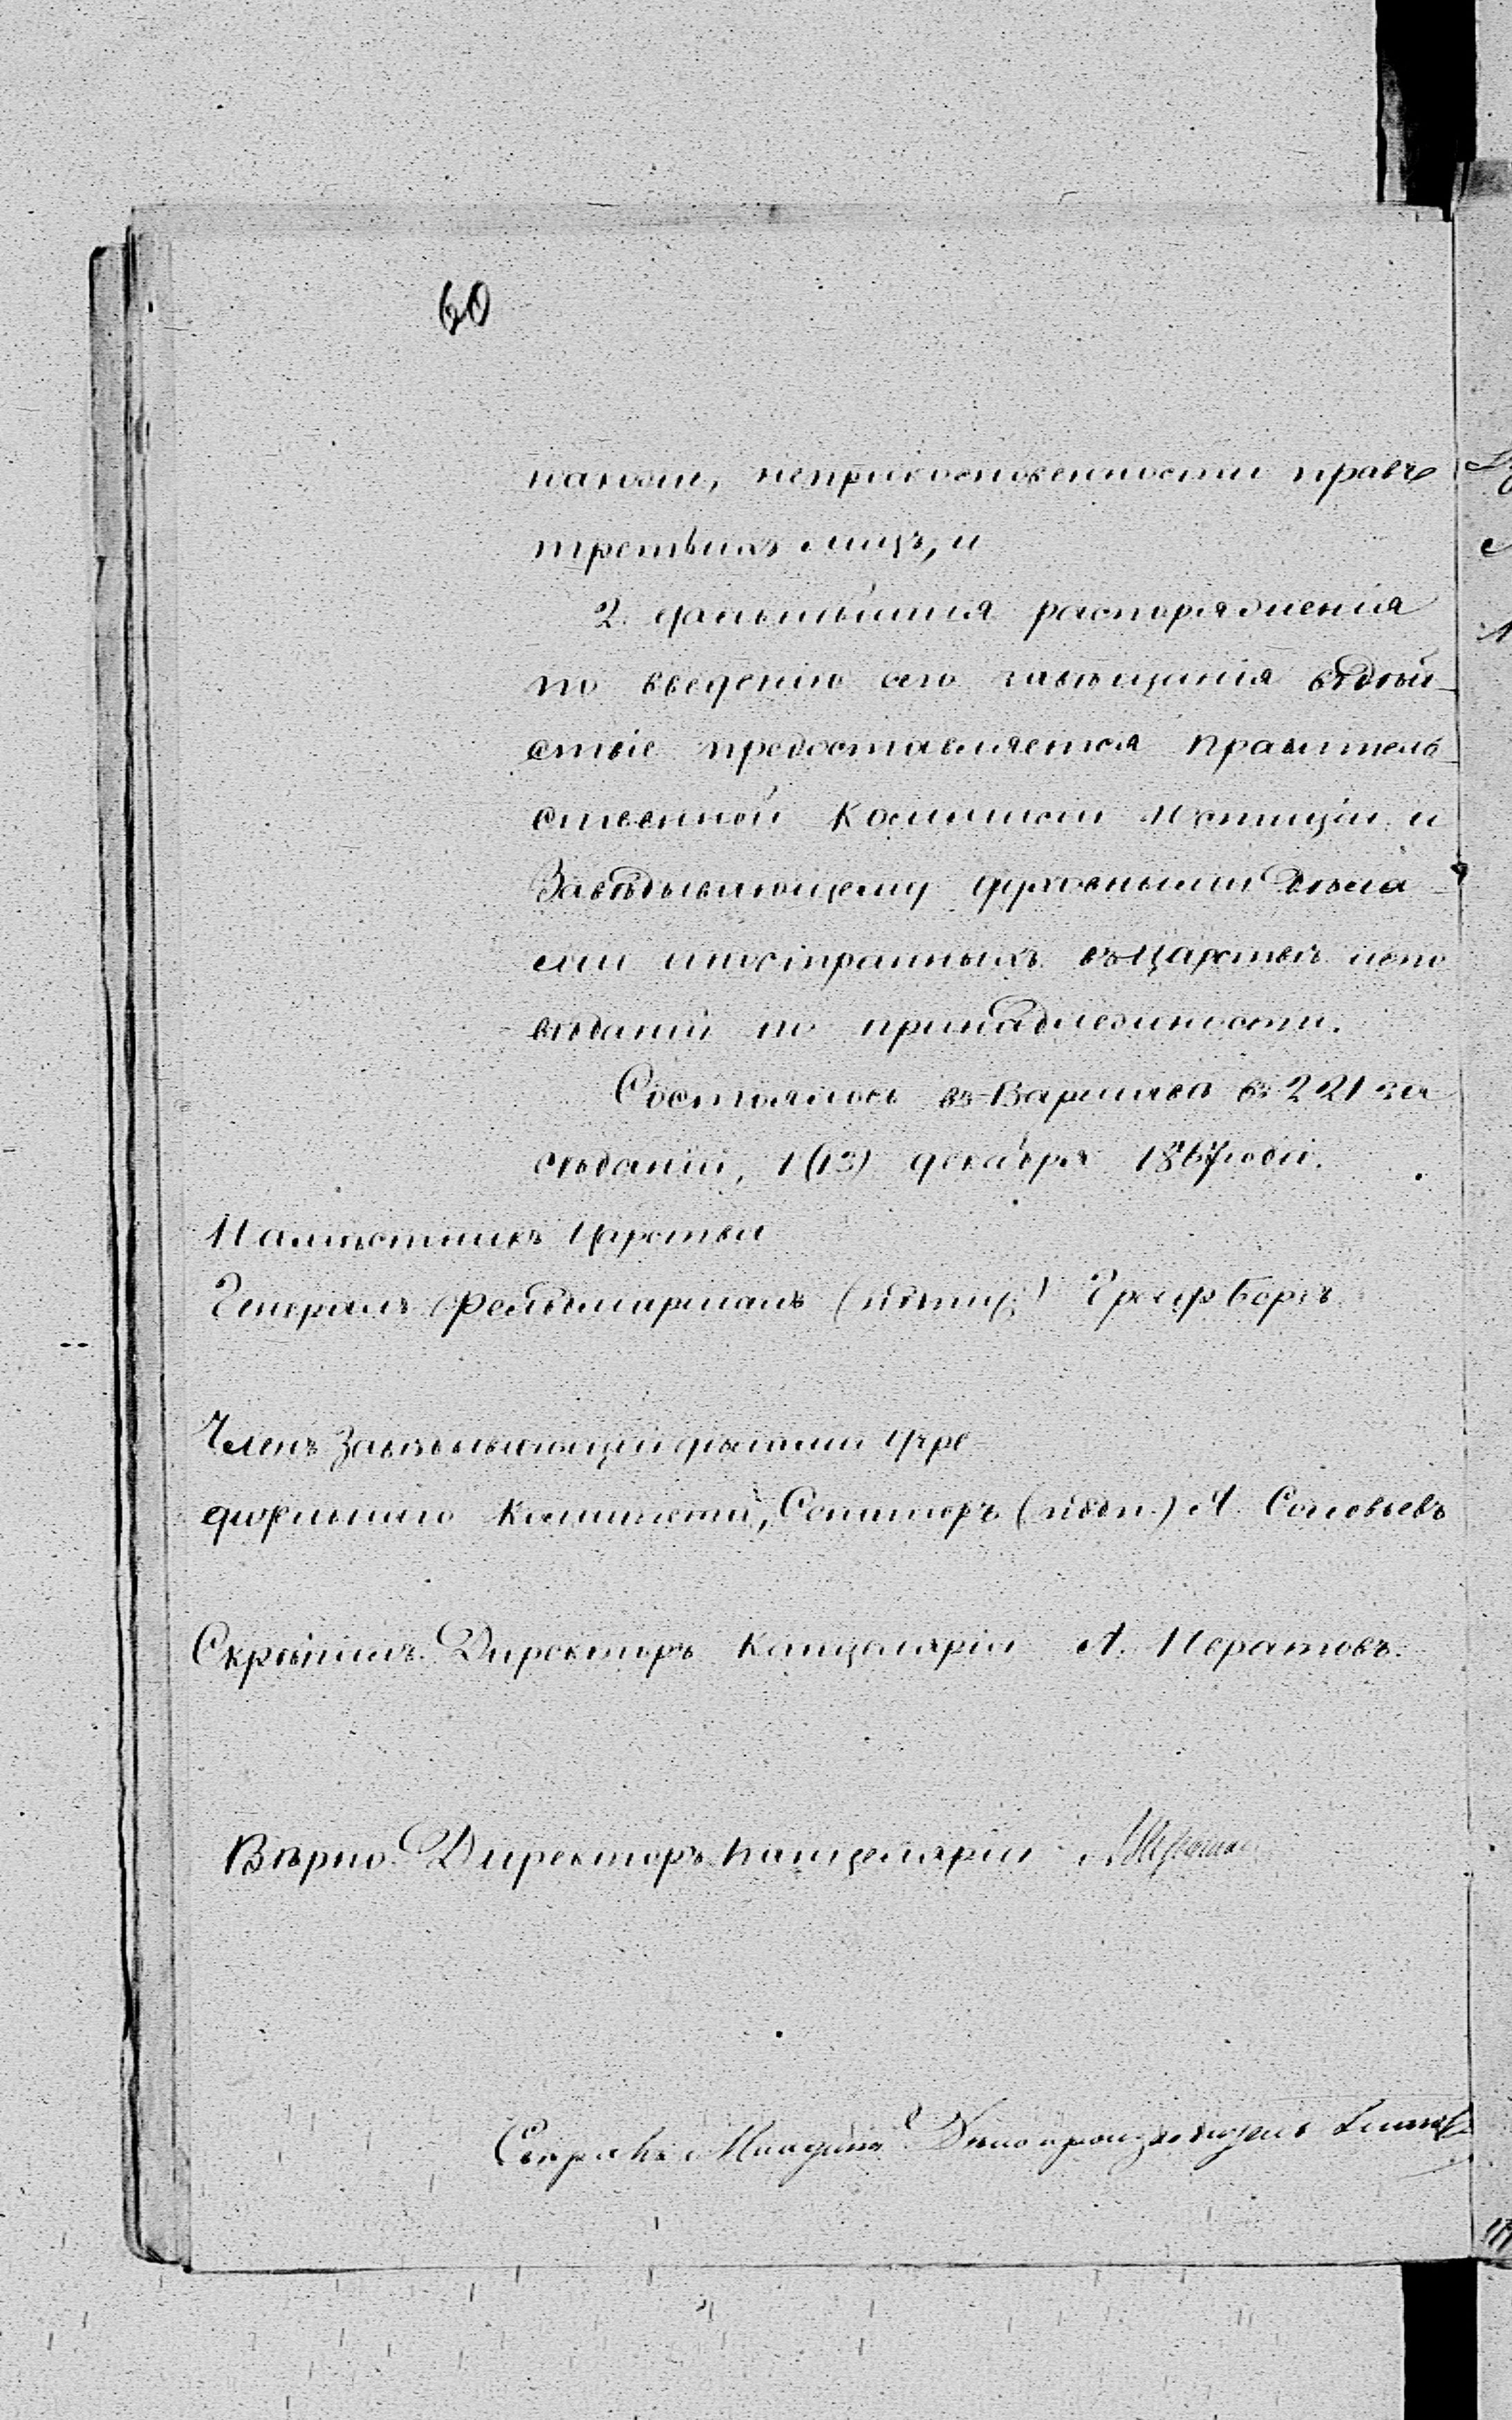 60
неприкосновенности правъ
третьихъ лицъ, и
2. дальнѣйшія распоряженія
по введенію сего завѣщанія въ дѣй-
ствіе предоставляется Правитель-
ственной Коммисіи Юстиціи и
Завѣдывающему духовными дѣла-
ми иностранныхъ въ Царствѣ испо
вѣданій по принадлежности.
Состоялось въ Варшавѣ въ 221 за
сѣданіи, 1 (13) декабря 1867 года.
Намѣстникъ Царства
Генералъ Фельдмаршалъ (подпис.) Графъ Бергъ.
Членъ Завѣдывающій дѣлами Учре-
дительнаго Комитета, Сенаторъ (подп.) Я. Соловьевъ
Скрѣпилъ: Директоръ Канцеляріи А. Нератовъ.
Вѣрно: Директоръ Канцеляріи
Дѣлопроизводитель